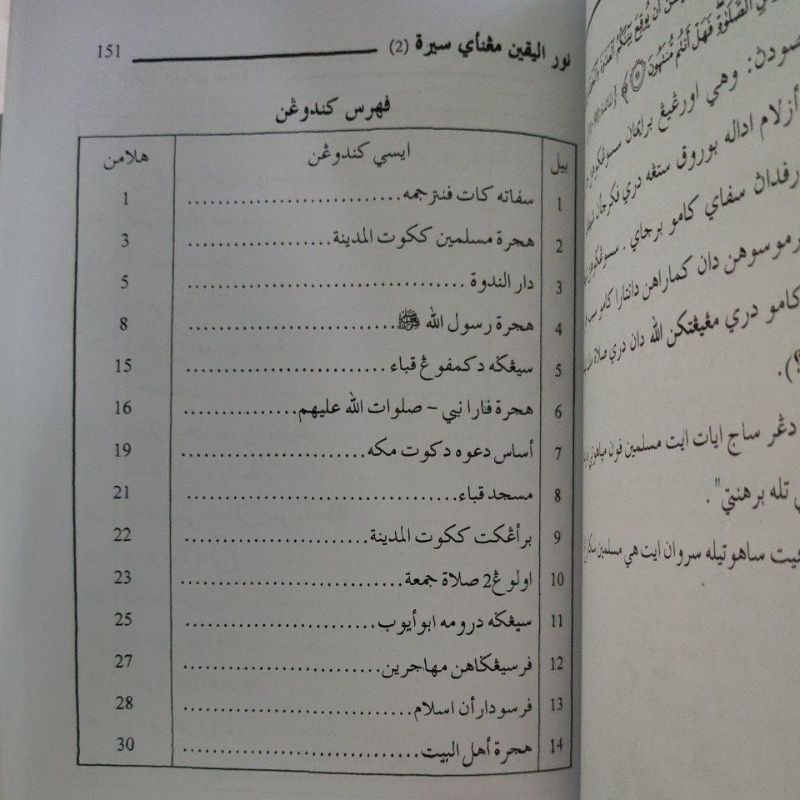 نور اليقين مڠنأي سيرة (2) 151
فهرس كندوڠن
بيل ايسي كندوڠن هلامن
1 سفاته كات فنترجمه............................ 1
2 هجرة مسلمين ككوت المدينة.................... 3
3 دار الندوة .............................. 5
4 هجرة رسول الله ﷺ............................ 8
5 سيڠݢه دكمفوڠ قباء ........................... 15
6 هجرة فارا نبي – صلوات الله عليهم............... 16
7 أساس دعوه دكوت مكه......................... 19
8 مسجد قباء.................................. 21
9 برأڠكت ككوت المدينة......................... 22
10 اولوڠ2 صلاة جمعة........................... 23
11 سيڠݢه درومه ابو أيوب......................... 25
12 فرسيڠݢاهن مهاجرين......................... 27
13 فرسودارأن اسلام............................ 28
14 هجرة أهل البيت............................. 30
أزلام اداله بوروق ستڠه دري
سفاي كامو برجاي .
دان كماراهن دانتارا كامو
كامو دري مڠيڠتكن الله دان دري صلاة
دڠر ساج ايات ايت مسلمين فون
تله برهنتي" .
ساهوتيله سروان ايت هي مسلمين